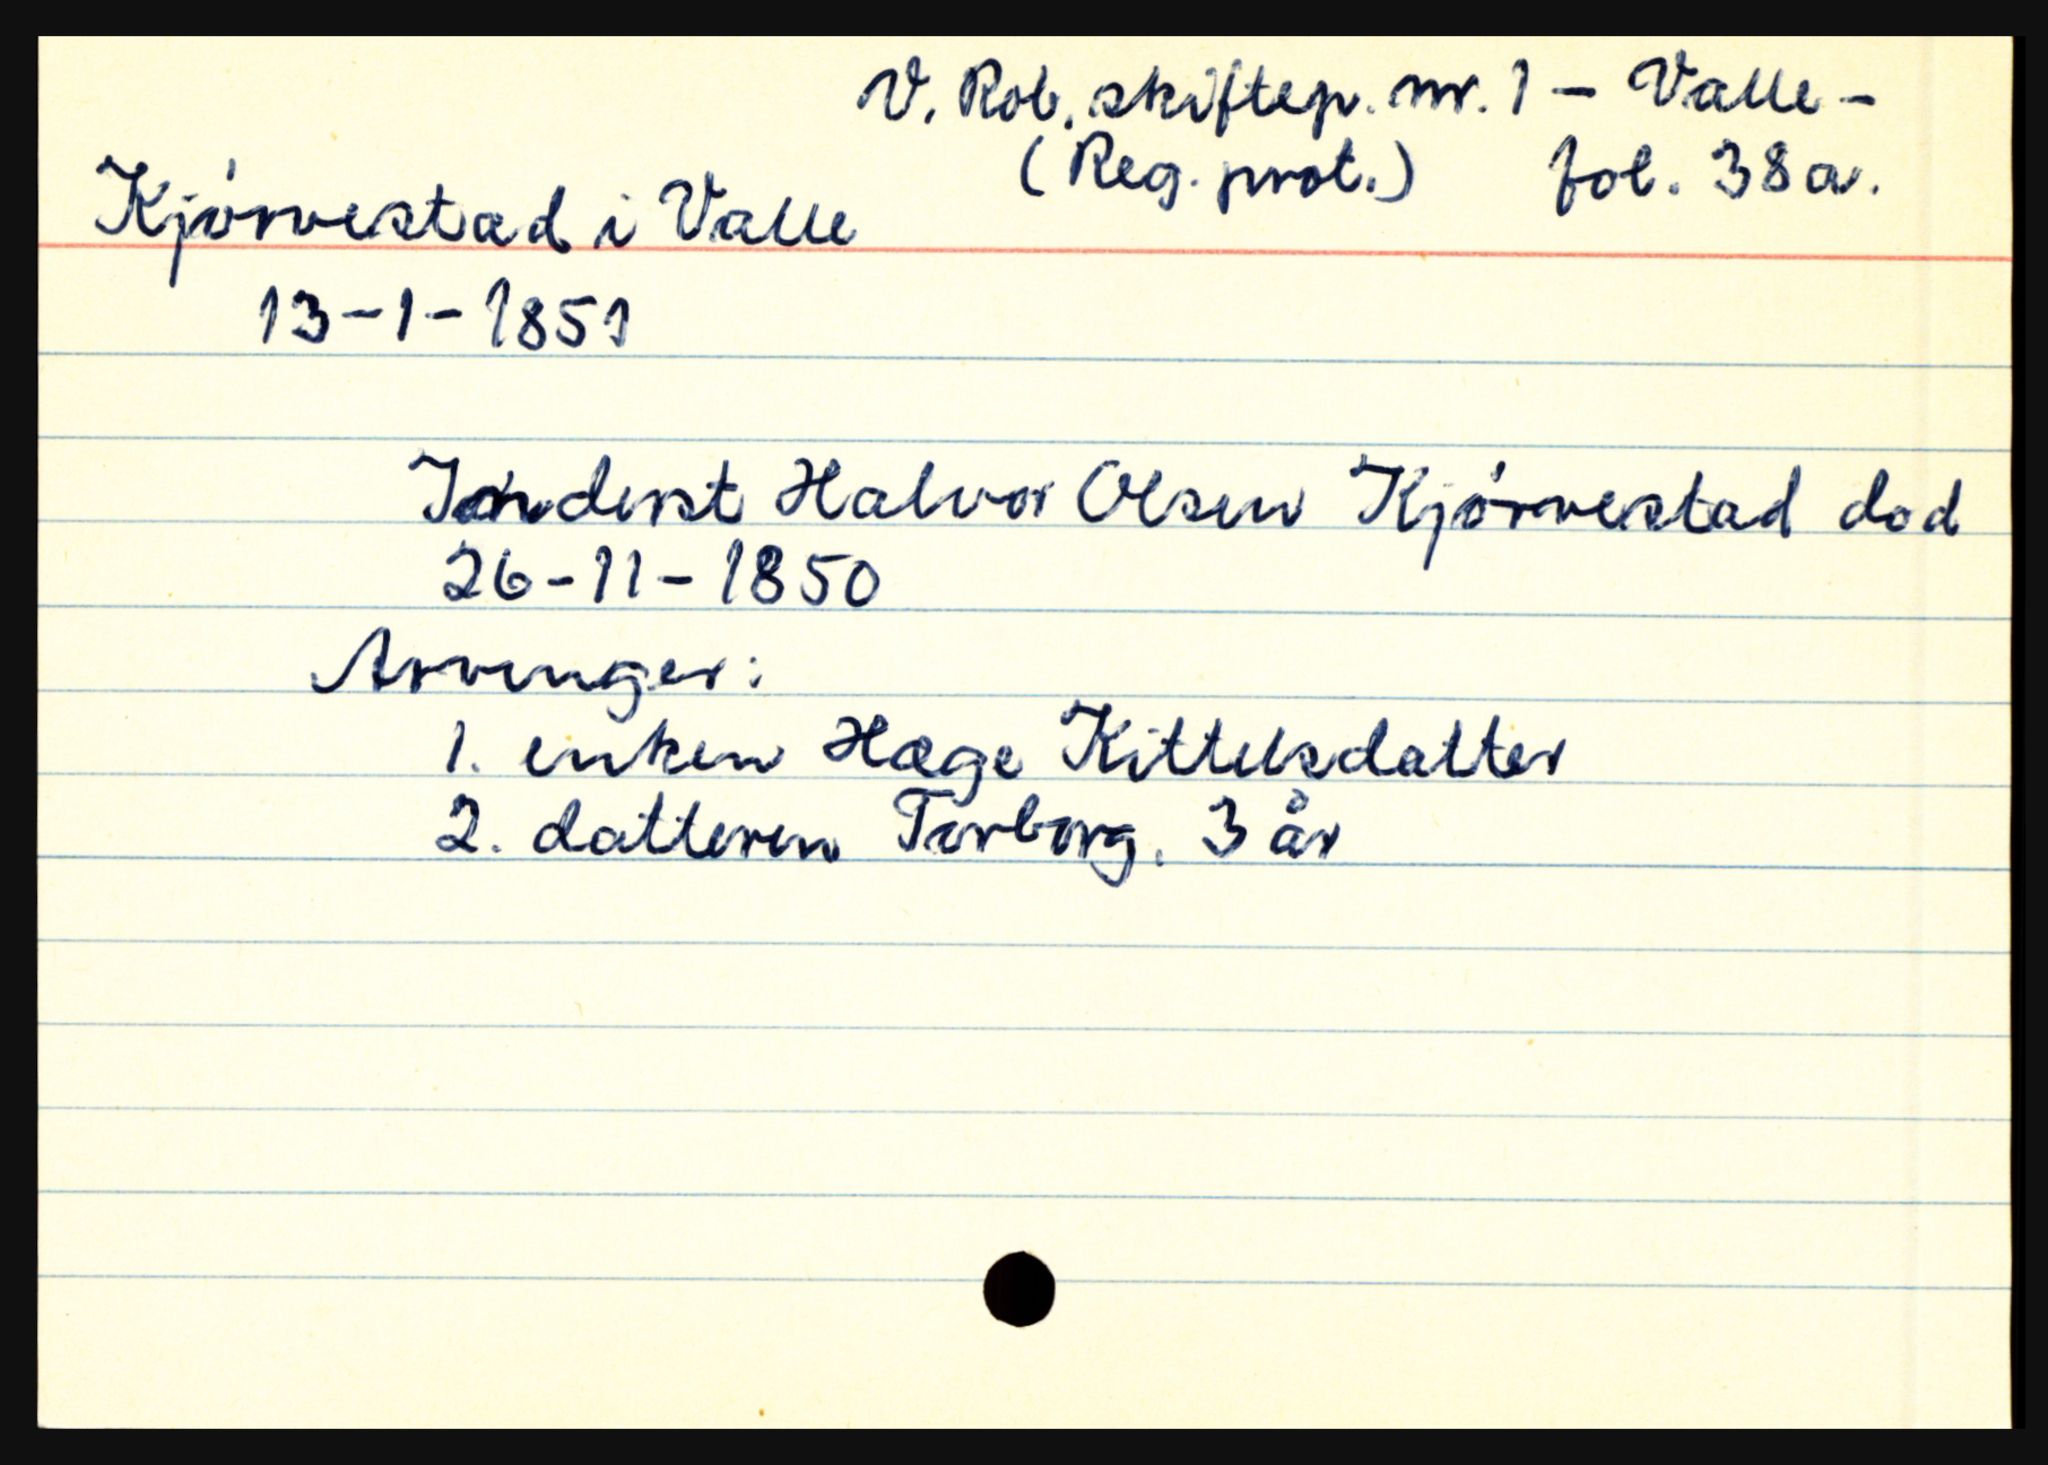 V. Rob. skiftep. nr. 1 - Valle -
(Reg. prot.) fol. 38a.
Kjørvestad i Valle
13-1-1851
Inderst Halvor Olsen Kjørvestad død
26-11-1850
Arvinger:
1. enken Hæge Kittelsdatter
2. datteren Torborg. 3 år